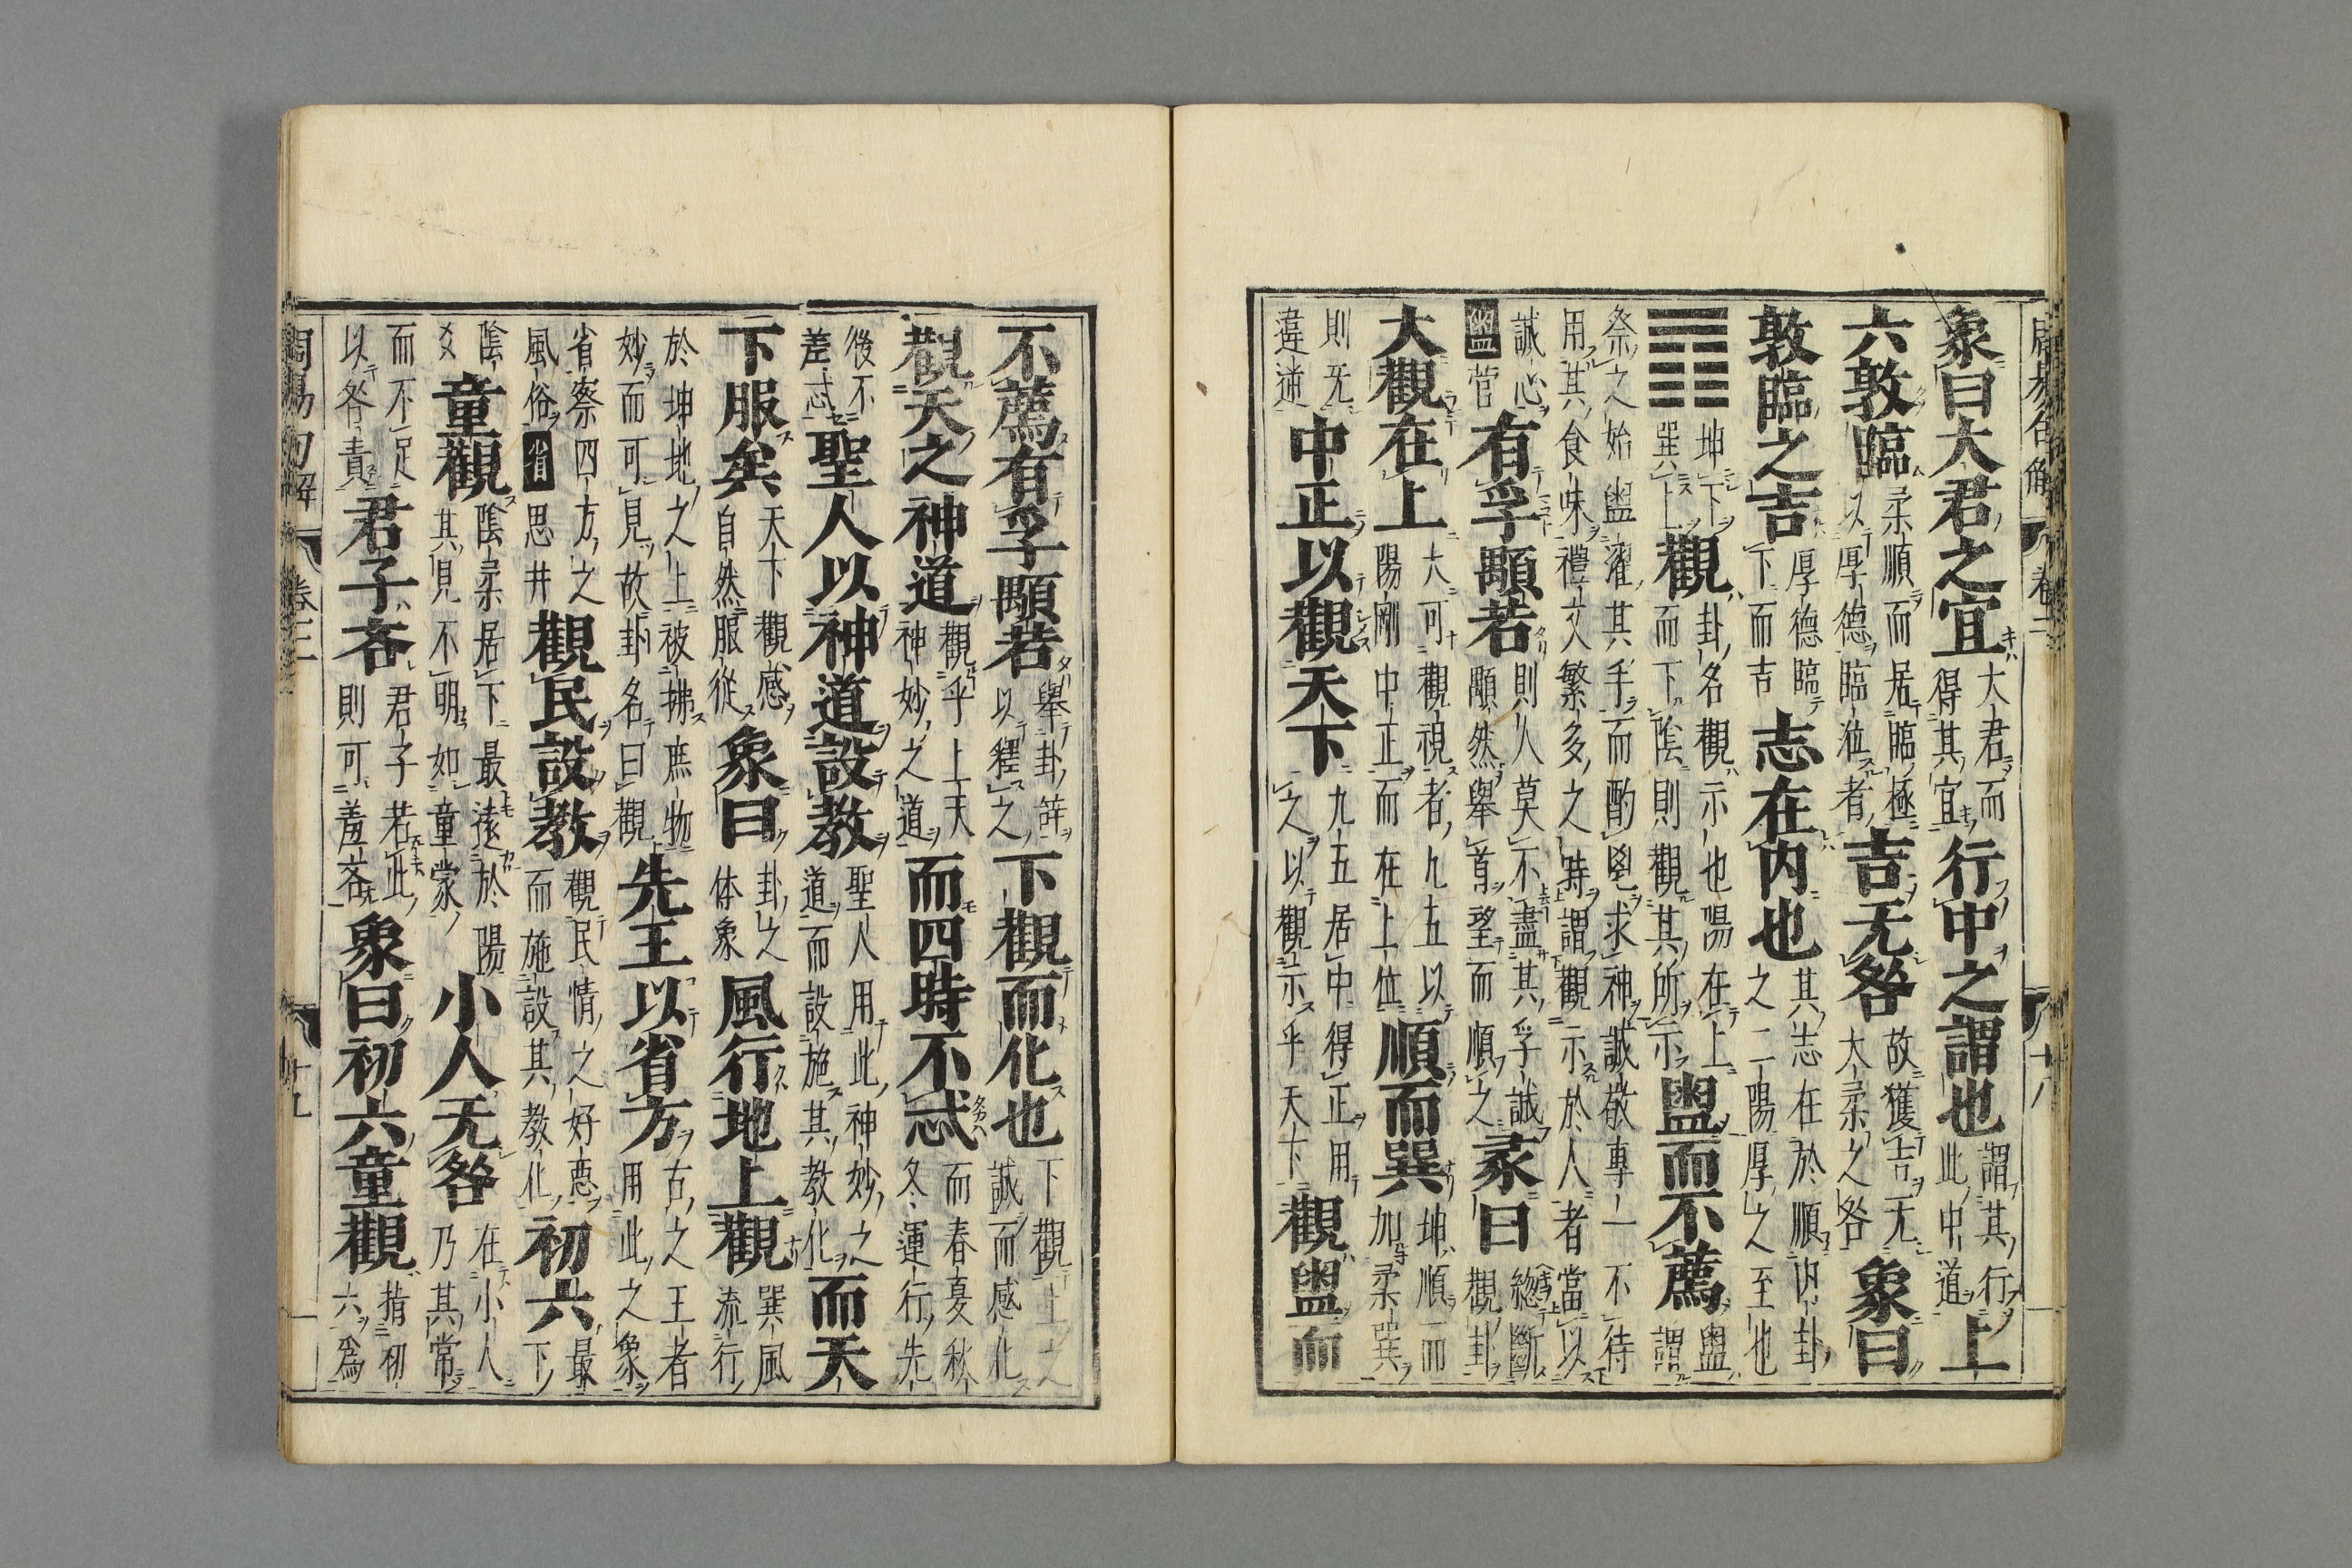 周易句解 卷三 十八
象曰大君之宜大君而得其宜行中之謂也謂其行此中道上
六敦臨柔順而居臨極以厚德臨涖者吉无咎故獲吉无大柔之咎象曰
敦臨之吉厚德臨下而吉志在内也其志在於順内卦之二陽厚之至也
䷓坤下巽上觀卦名觀示也陽在上而下陰則觀其所示盥而不薦盥謂
祭之始盥濯其手而酌鬯求神誠敬專一不待
用其食味禮文繁多之時謂觀示於人者當以
誠心盥菅有孚顒若則人莫不盡其孚誠顒然舉首望而順之彖曰惣斷觀卦
大觀在上大可觀視者九五以陽剛中正而在上位順而巽坤順而加柔巽
則无違逆中正以觀天下九五居中得正用之以觀示乎天下觀盥而
不薦有孚顒若舉卦辭以釋之下觀而化也下觀上之誠而感化
觀天之神道觀乎上天神妙之道而四時不忒而春夏秋冬運行先
後不差忒聖人以神道設教聖人用此神妙之道而設施其教化而天
下服矣天下觀感自然服從象曰卦之体象風行地上觀巽風流行
於坤地之上被拂庶物妙而可見故卦名曰觀先王以省方古之王者用此之象
省察四方之風俗省思井觀民設教觀民情之好惡而施設其教化初六最下
陰爻童觀陰柔居下最遠於陽其見不明如童蒙小人无咎在小人乃其常
而不足以咎責君子吝君子若此則可羞吝象曰初六童觀指初六爲
周易句解 卷三 十九